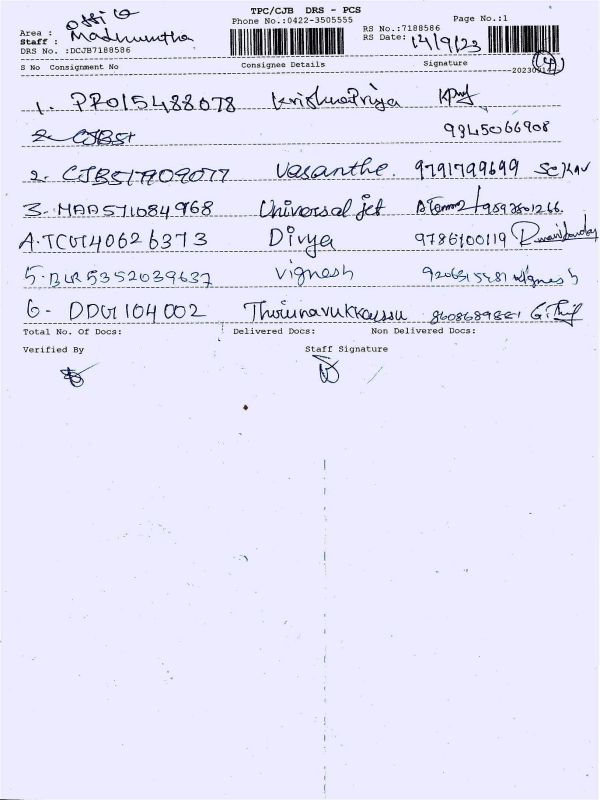 TPC/CJB DRS - PCS
Phone No.:0422-3505555
Page No.:1
Area : Office
Staff : Madhumitha
DRS No. :DCJB7188586
RS No.:7188586
RS Date: 14/9/23
S No Consignment No Consignee Details Signature
1. PRO15488078 KrishnaPriya
9345066908
2. CJB517909077 Vasanthe. 9791799699
3. MAA571084968 Universal jet
4. TCG140626373 Divya 9786100119
5. BLR5352039637 Vignesh
6- DDG1104002 Thirunavukkarasu 8608689881
Total No. Of Docs: Delivered Docs: Non Delivered Docs:
Verified By Staff Signature